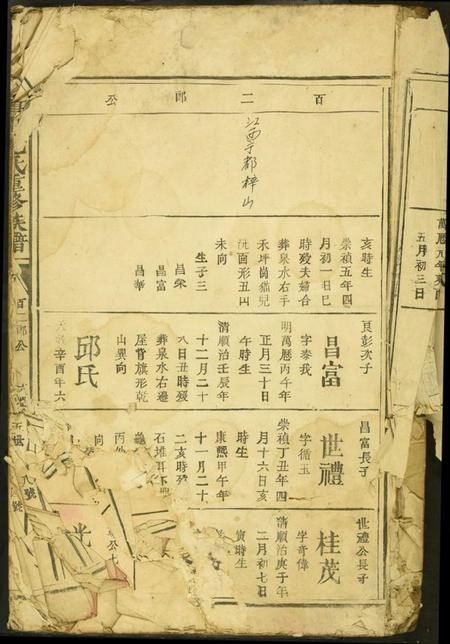 百二郎公
江西于都梓山
亥時生
崇禎五年四
月初一日巳
時歿夫婦合
葬泉水右手
禾坪崗猫兒
洗面形丑山
未向
生子三
昌榮
昌富
昌華
貢彭次子
昌富
字泰我
明萬曆丙午年
正月三十日
午時生
清順治壬辰年
十二月二十
八日丑時歿
葬泉水右邊
屋背旗形乾
山巽向
邱氏
辛酉年六
昌富長子
世禮
字循玉
崇禎丁丑年四
月十六日亥
時生
康熙甲午年
十一月二十
二亥時歿
石堆
丙
向
世禮公長子
桂茂
字奇偉
清順治庚子年
二月初七日
寅時生
萬曆元年癸酉
五月初三日
氏重修族譜
百二郎公
山
八號
光
公七